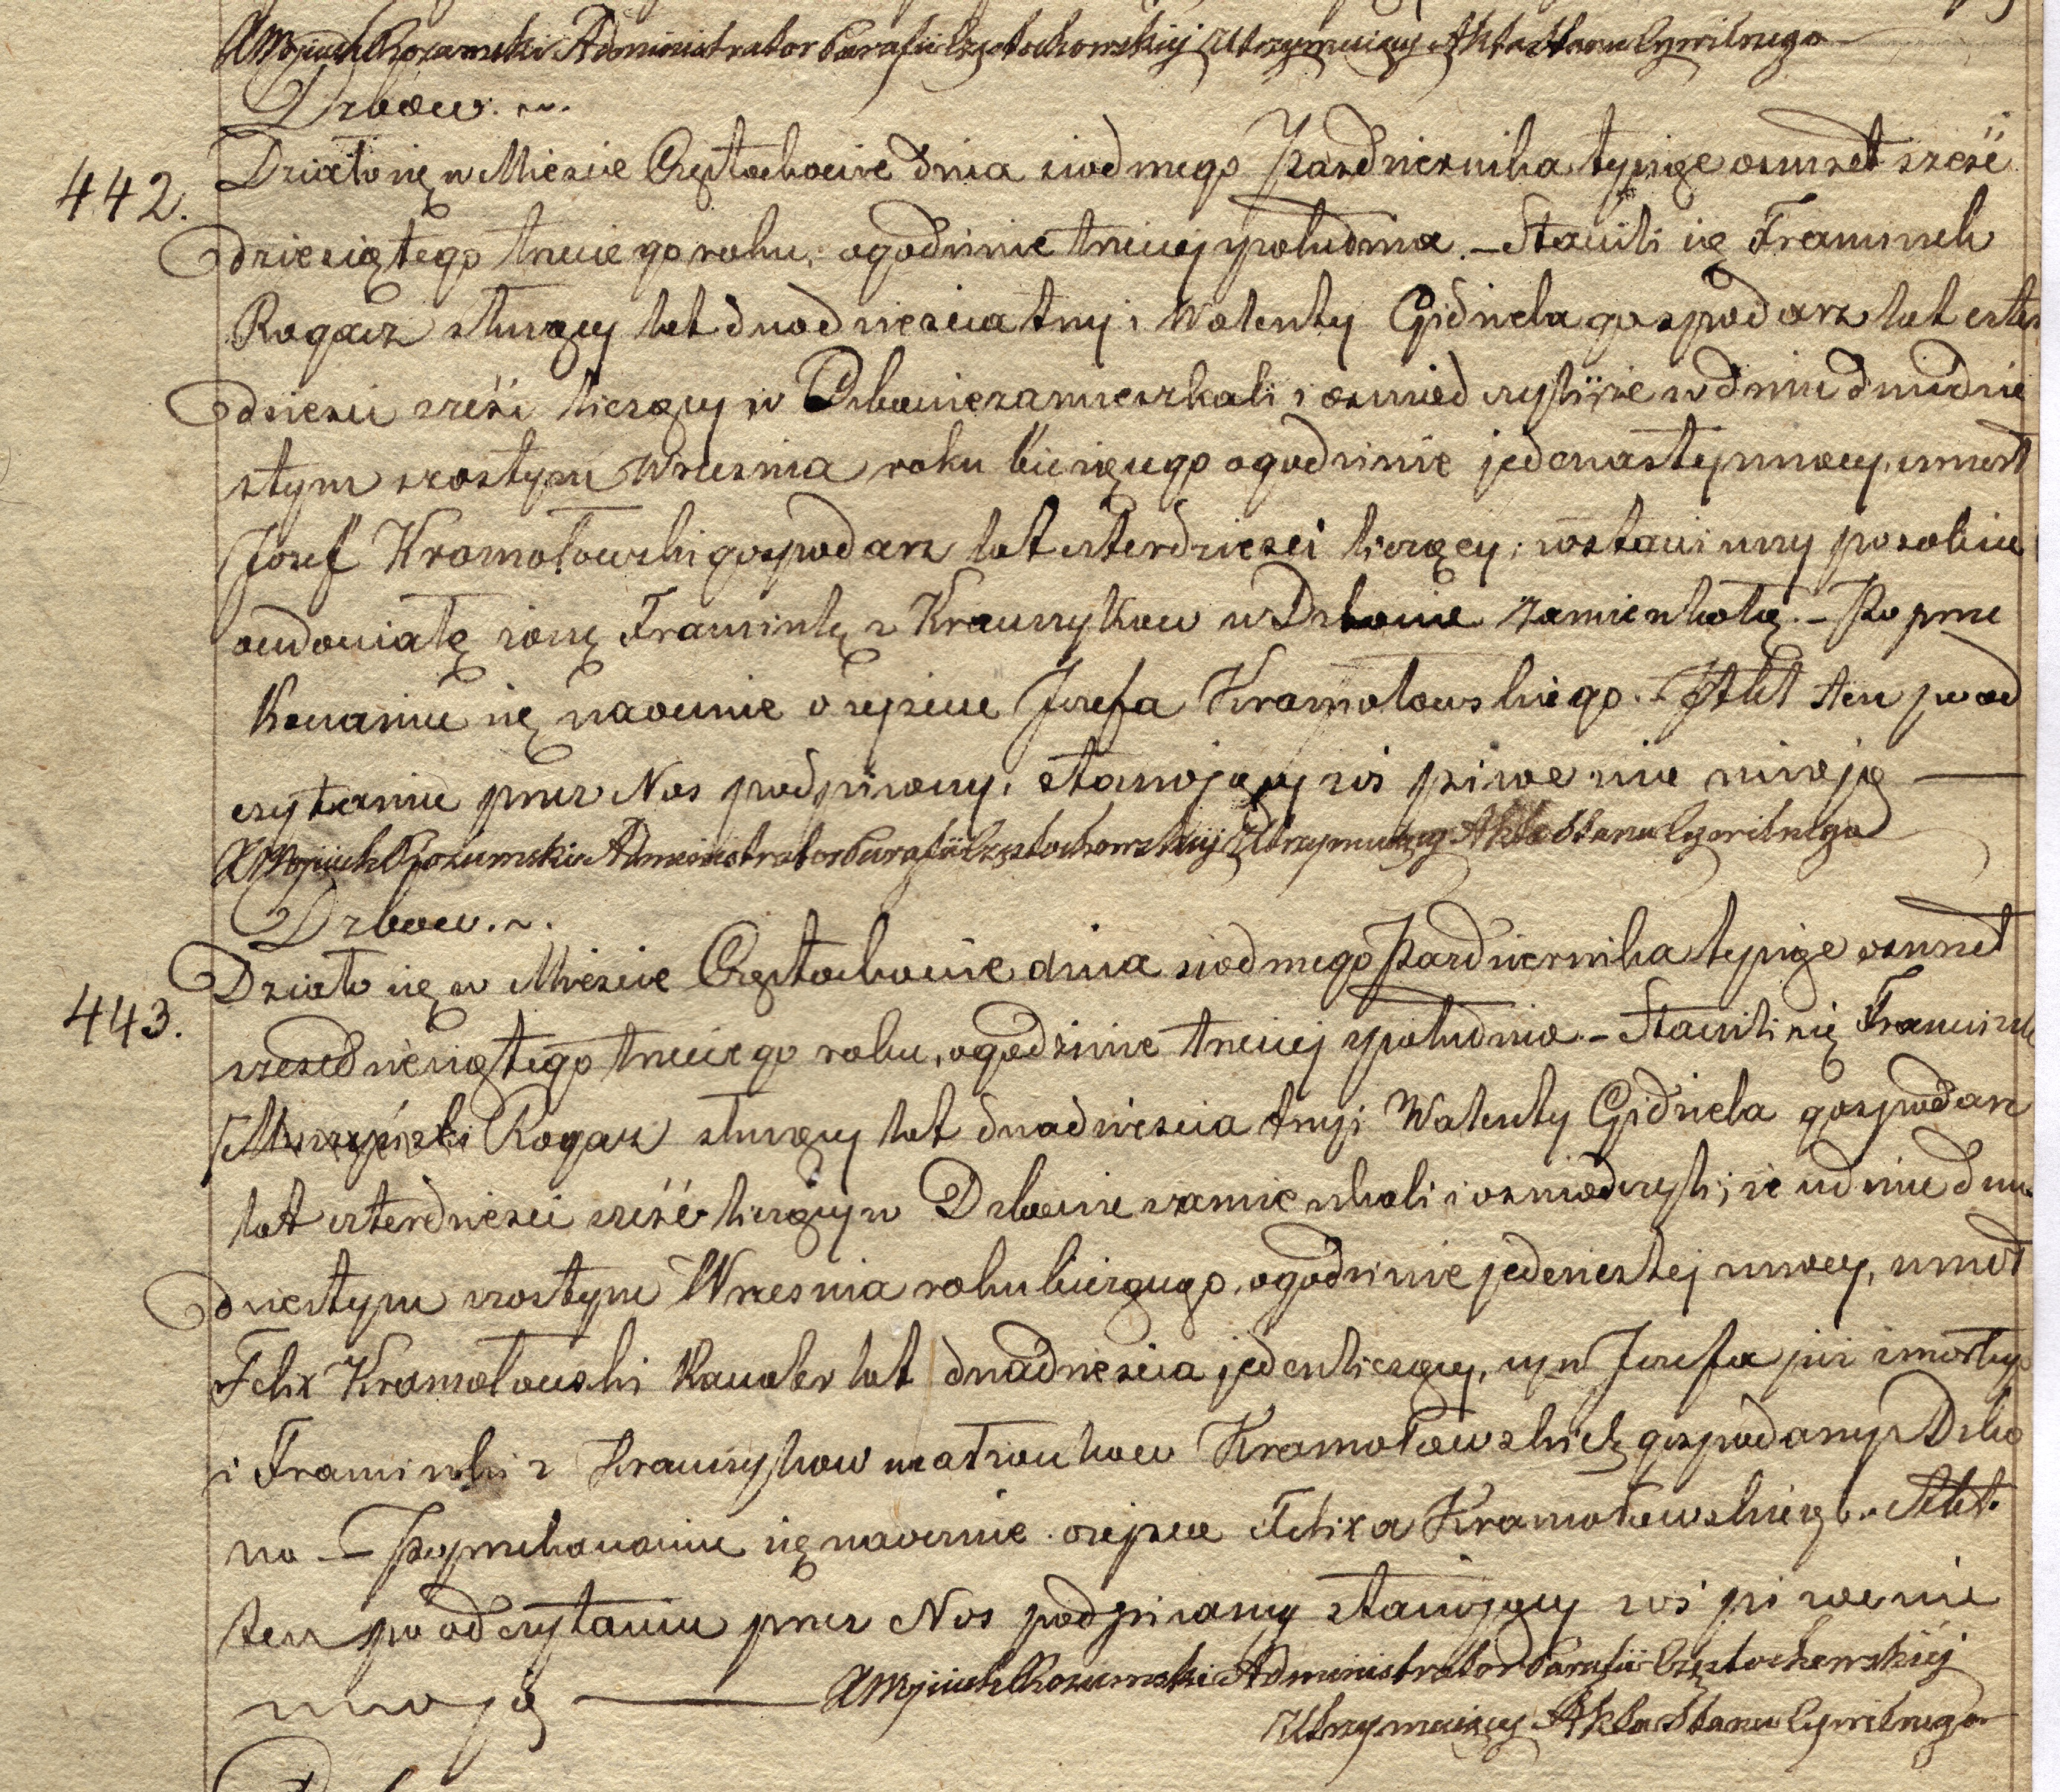 X Wojciech Rozumski Administrator Parafii Częstochowskiej Utrzymujący Akta Stanu Cywilnego
Dzbów. ~.
442.
Działo się w Mieście Częstochowie dnia siodmego Pazdziernika tysiąc osmset sześć
dziesiątego trzeciego roku, o godzinie trzeciej z południa. – Stawili się Franciszek
Rogacz służący lat dwadzieścia trzy i Walenty Gidziela gospodarz lat czter
dzieści sześć liczący w Dzbowie zamieszkali i oswiadczyli, że w dniu dwudzie
stym szostym Wrzesnia roku bieżącego o godzinie jedenastej w nocy, umarł
Jozef Kramołowski gospodarz lat czterdzieści liczący, zostawiwszy po sobie
owdowiałę żonę Franciszkę z Krawczyków w Dzbowie zamieszkałą. – Po prze
konaniu się naocznie o zejściu Jozefa Kramołowskiego. – Akt ten po od
czytaniu przez Nas podpisany, stawający zaś pisać nie umieją
X Wojciech Rozumski Administrator Parafii Częstochowskiej Utrzymujący Akta Stanu Cywilnego
Dzbów. ~.
443.
Działo się w Mieście Częstochowie dnia siodmego Pazdziernika tysiąc osmset
szesćdziesiątego trzeciego roku, o godzinie trzeciej z południa. – Stawili się Franciszek
Rogacz służący lat dwadzieścia trzy i Walenty Gidziela gospodarz
lat czterdzieści sześć liczący w Dzbowie zamieszkali i oswiadczyli, że w dniu dwu
dziestym szostym Wrzesnia roku bieżącego, o godzinie jedenastej w nocy, umarł
Felix Kramołowski Kawaler lat dwadzieścia jeden liczący, syn Jozefa już zmarłego
i Franciszki z Krawczyków małżonków Kramołowskich gospodarzy z Dzbo
wa – Po przekonaniu się naocznie o zejściu Felixa Kramołowskiego. Akt
ten po odczytaniu przez Nas podpisany stawający zaś pisać nie
umieją
X Wojciech Rozumski Administrator Parafii Częstochowskiej
Utrzymujący Akta Stanu Cywilnego